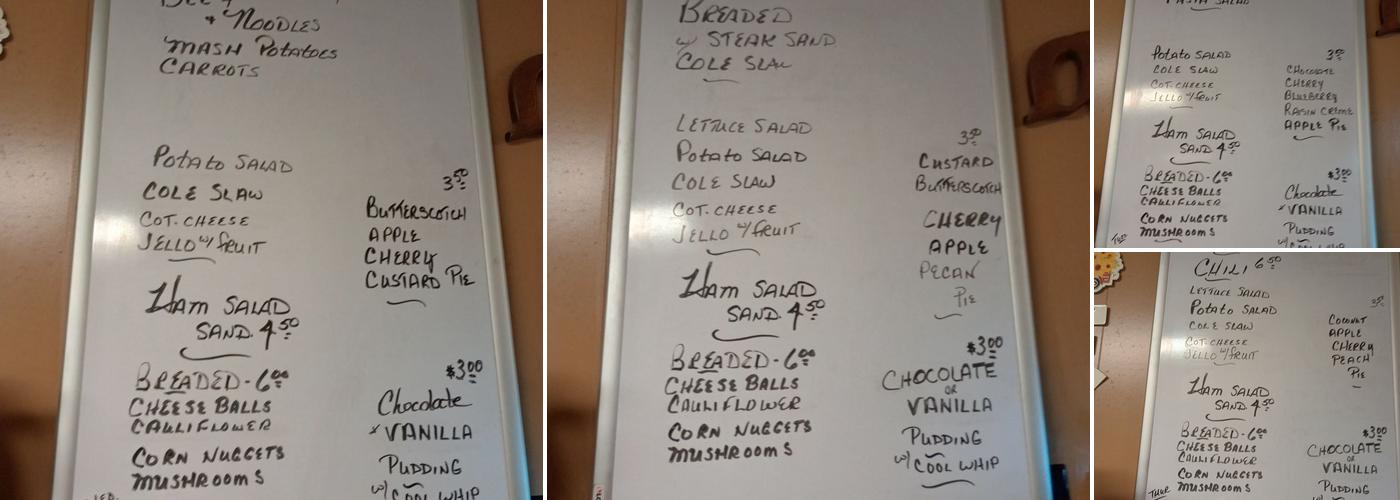 + NOODLES
MASH POTATOES
CARROTS
POTATO SALAD
COLE SLAW
COT. CHEESE
JELLO W/ FRUIT
HAM SALAD
SAND. 4.50
BREADED - 6.00
CHEESE BALLS
CAULIFLOWER
CORN NUGGETS
MUSHROOMS
3.50
BUTTERSCOTCH
APPLE
CHERRY
CUSTARD PIE
$3.00
Chocolate
VANILLA
PUDDING
W/ COOL WHIP
BREADED
W/ STEAK SAND
COLE SLAW
LETTUCE SALAD
POTATO SALAD
COLE SLAW
COT. CHEESE
JELLO W/ FRUIT
HAM SALAD
SAND. 4.50
BREADED - 6.00
CHEESE BALLS
CAULIFLOWER
CORN NUGGETS
MUSHROOMS
3.50
CUSTARD
BUTTERSCOTCH
CHERRY
APPLE
PECAN
PIE
$3.00
CHOCOLATE
OR
VANILLA
PUDDING
W/ COOL WHIP
PASTA SALAD
POTATO SALAD
COLE SLAW
COT. CHEESE
JELLO W/ FRUIT
HAM SALAD
SAND 4.50
BREADED - 6.00
CHEESE BALLS
CAULIFLOWER
CORN NUGGETS
MUSHROOMS
3.50
CHOCOLATE
CHERRY
BLUEBERRY
RAISIN CREME
APPLE PIE
$3.00
Chocolate
VANILLA
PUDDING
W/ COOL WHIP
CHILI 6.50
LETTUCE SALAD
POTATO SALAD
COLE SLAW
COT. CHEESE
JELLO W/ FRUIT
HAM SALAD
SAND 4.50
BREADED - 6.00
CHEESE BALLS
CAULIFLOWER
CORN NUGGETS
THUR MUSHROOMS
COCONUT
APPLE
CHERRY
PEACH
PIE
$3.00
CHOCOLATE
OR
VANILLA
PUDDING